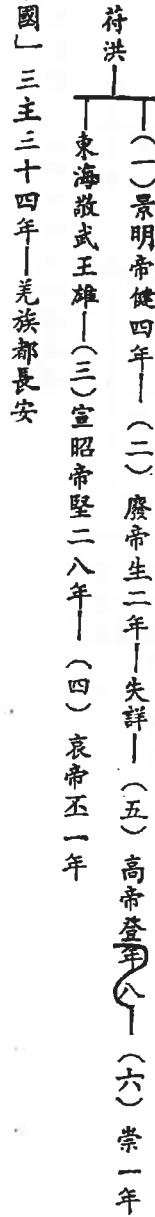 苻洪
（一）景明帝健四年—（二）廢帝生二年—失詳—（五）高帝登年八—（六）崇一年
東海敬武王雄—（三）宣昭帝堅二八年—（四）哀帝丕一年
國」三主三十四年—羌族都長安